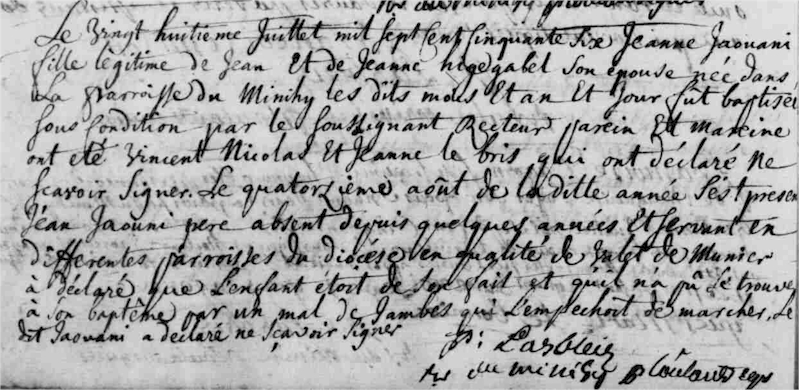 Le vingt huitieme Juillet mil sept cent cinquante six Jeanne Jaouani
fille legitime de Jean Et de Jeanne hegegabel son epouse née dans
La Parroisse du Minihy les dits mois Et an Et jour fût baptisée
sous condition par le soussignant Recteur parein Et mareine
ont eté Vincent Nicolas Et Jeanne le bris qui ont déclaré ne
scavoir signer. Le quatorzieme août de la ditte année s'est presen
Jean Jaouni pere absent depuis quelques années Et servant en
differentes parroisses du diocése en qualité de valet de Munier
à déclaré que L'enfant étoit de son fait et qu'il n'a pû se trouve
à son baptême par un mal de Jambes qui L'empechoit de marcher. Le
dit Jaouani a declaré ne sçavoir signer
du minihy